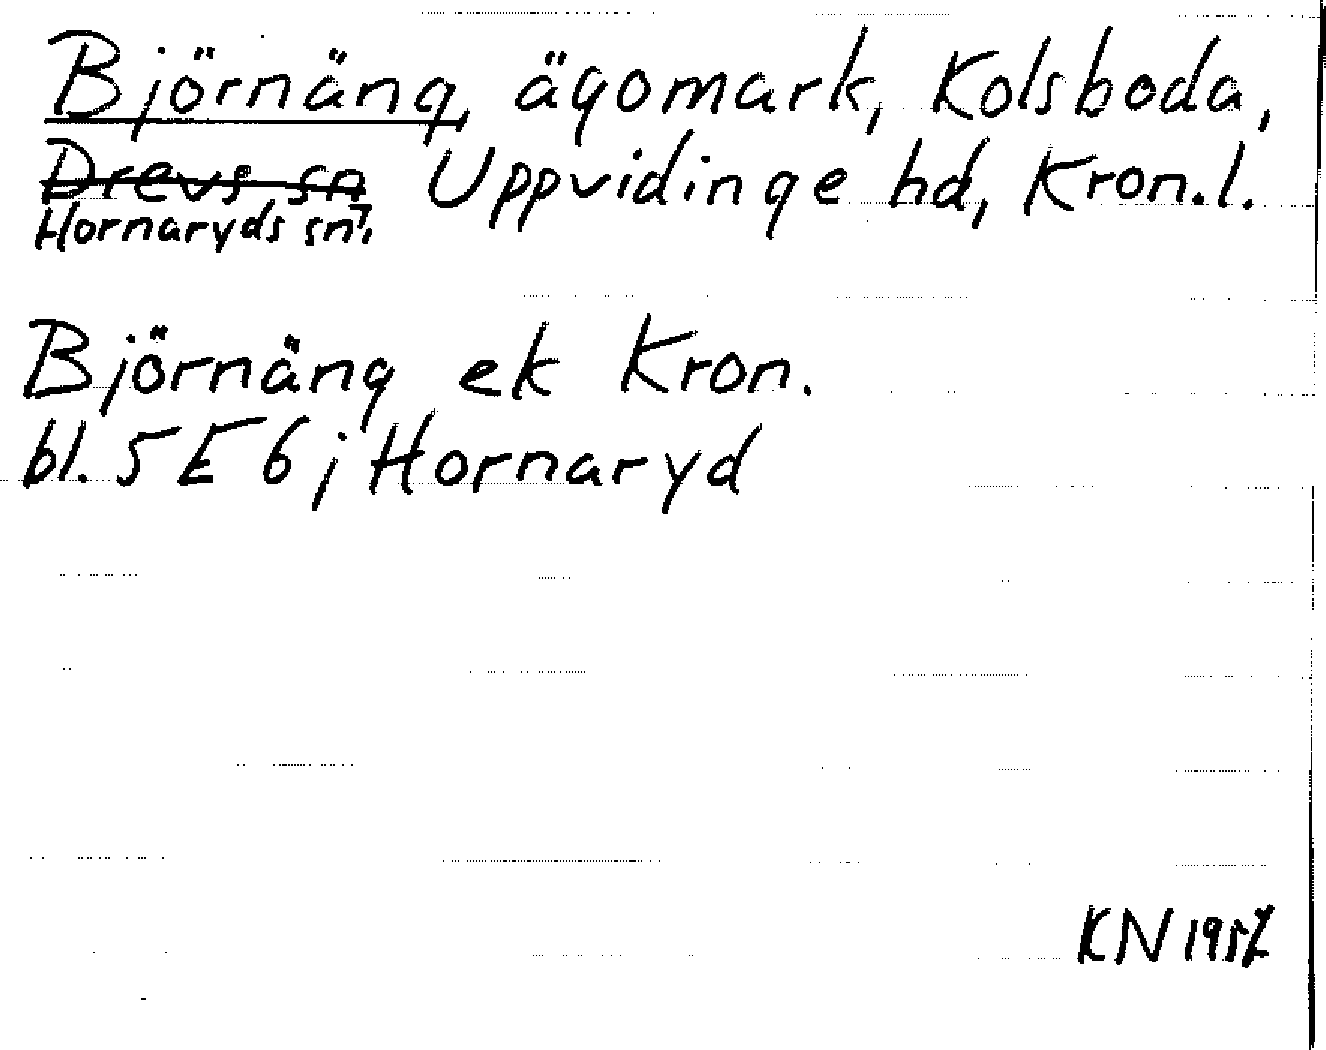 Björnäng, ägomark, Kolsboda,
Drevs sn Uppvidinge hd, Kron.l.
Hornaryds sn,
Björnäng ek Kron.
bl. 5E6j Hornaryd
KN 1957